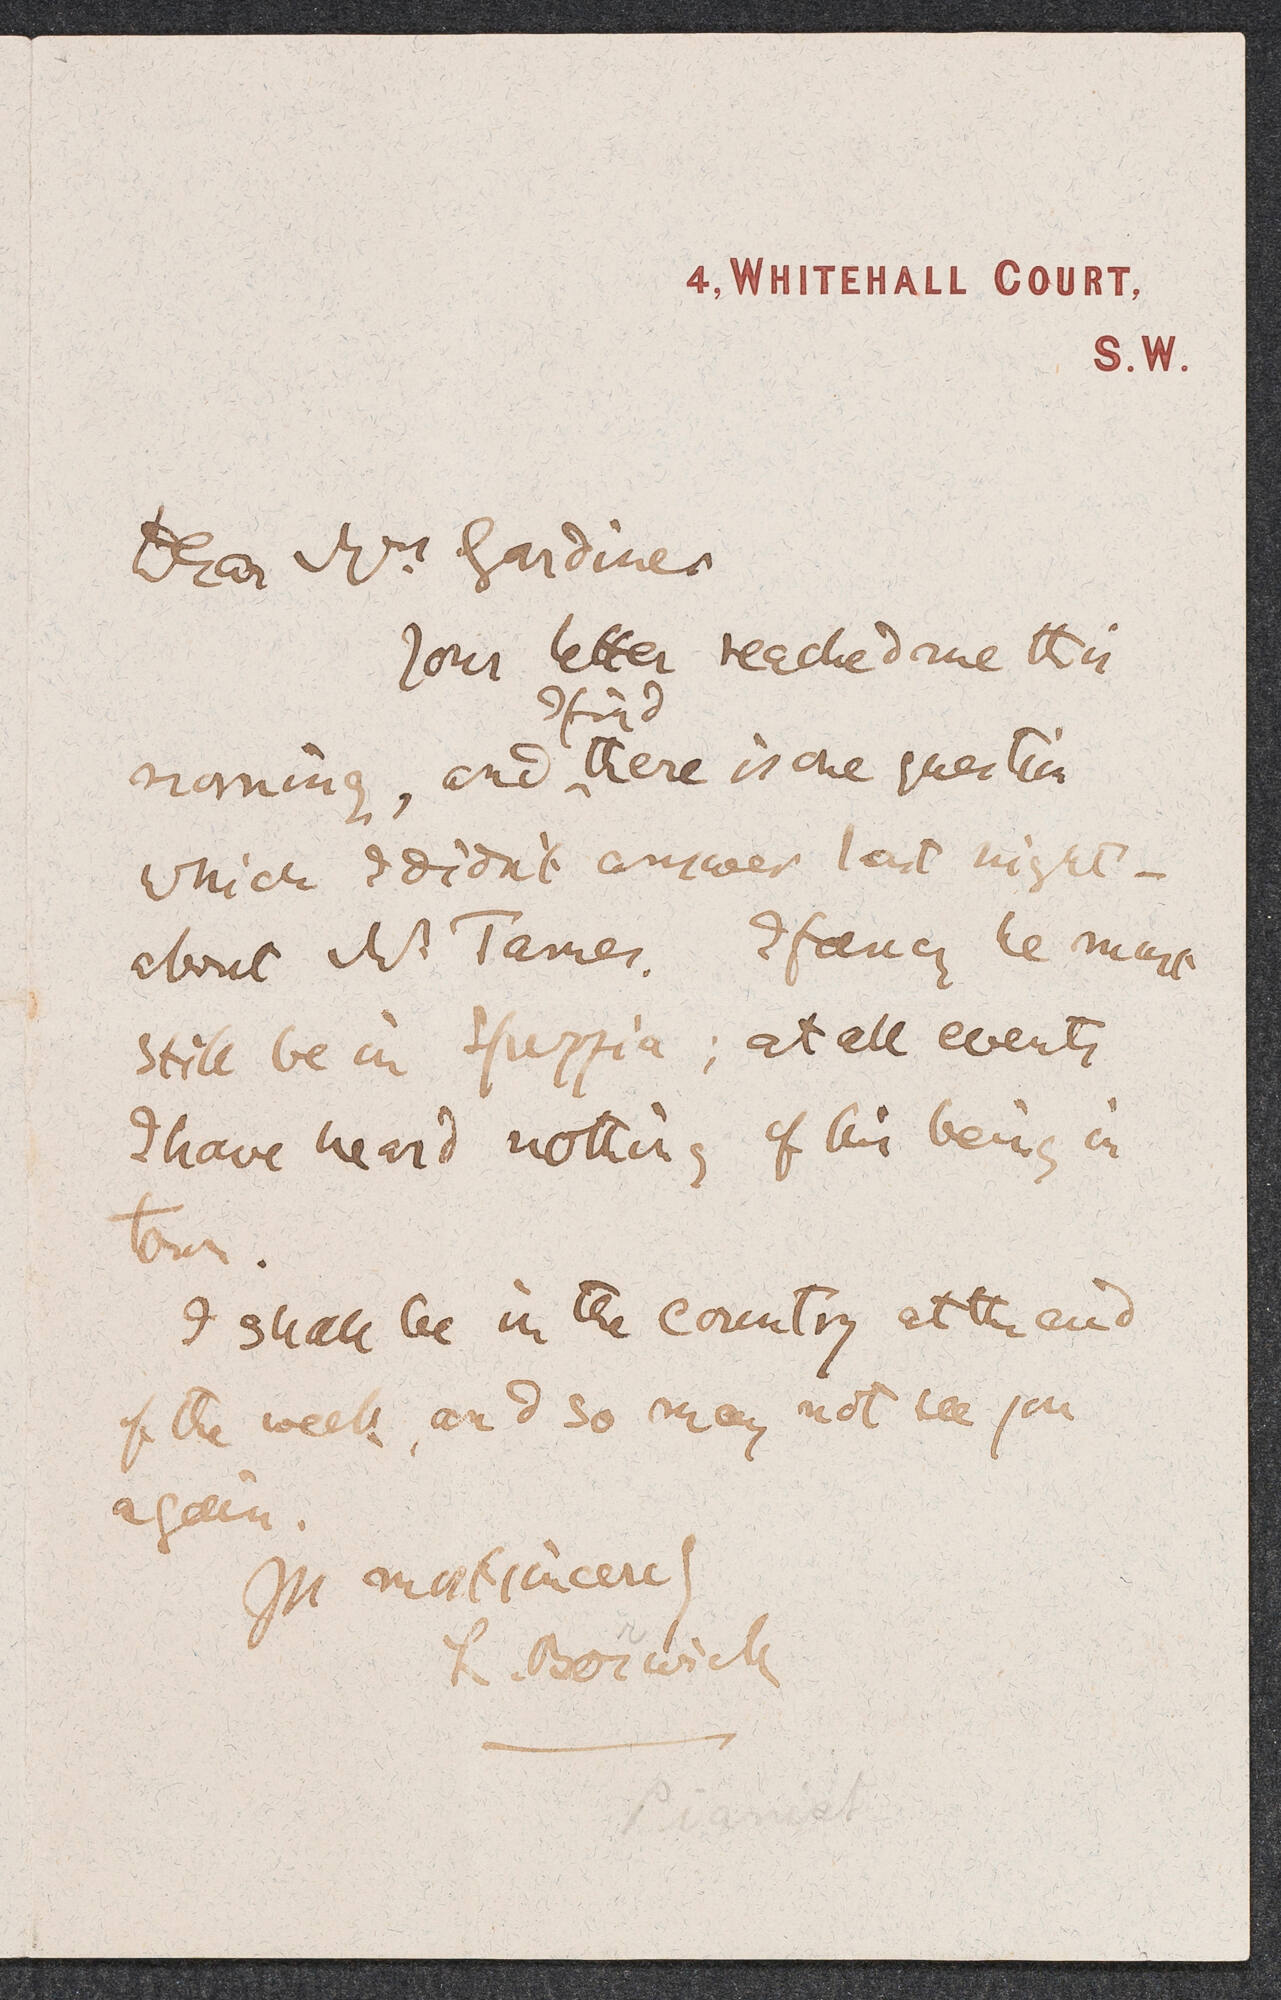 4, WHITEHALL COURT,
S.W.
Dear Mrs. Gardiner
Your letter reached me this
I find
morning, and ‸ there is one question
which I didn't answer last night –
about Mr James. I fancy he must
still be in Spezzia; at all events
I have heard nothing of his being in
town.
I shall be in the country at the end
of the week, and so may not see you
again.
Yrs most sincerely
L. Borwick
r
Pianist